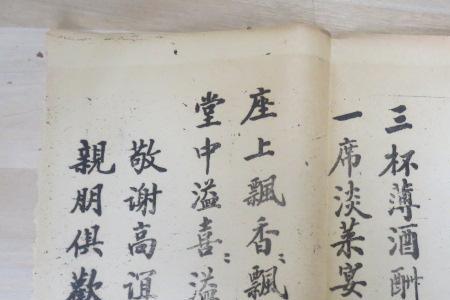 三杯薄酒酬
一席淡菜宴
座上飄香飄
堂中溢喜溢
敬谢高誼
親朋俱歡